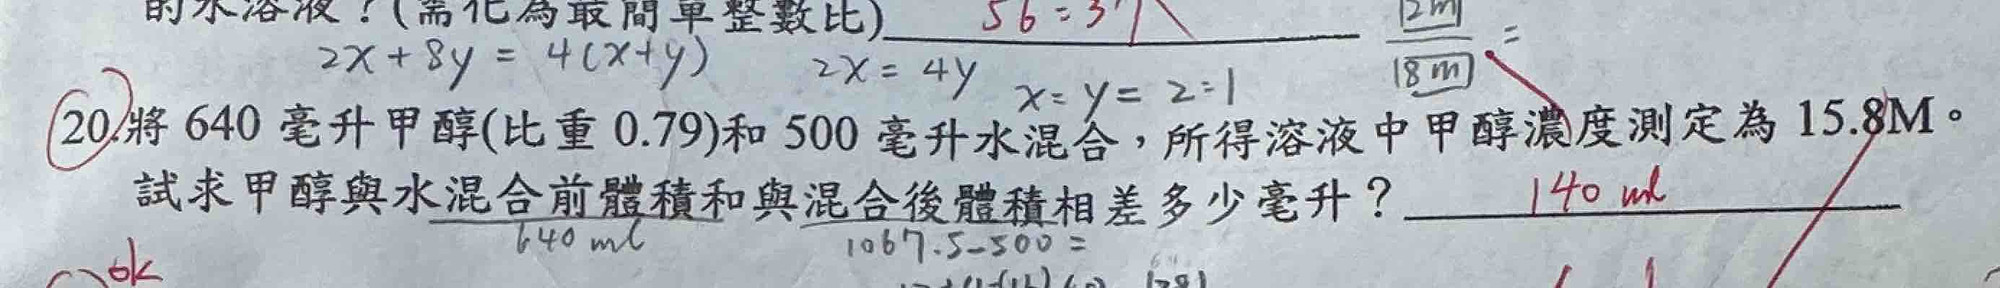 的水溶液？(需化為最簡單整數比) 56=37
2x+8y = 4(x+y) 2x = 4y x=y=2:1
12m
18m =
20.將 640 毫升甲醇(比重 0.79)和 500 毫升水混合，所得溶液中甲醇濃度測定為 15.8M。
試求甲醇與水混合前體積和與混合後體積相差多少毫升？ 140 ml
640 ml 1067.5-500=
ok